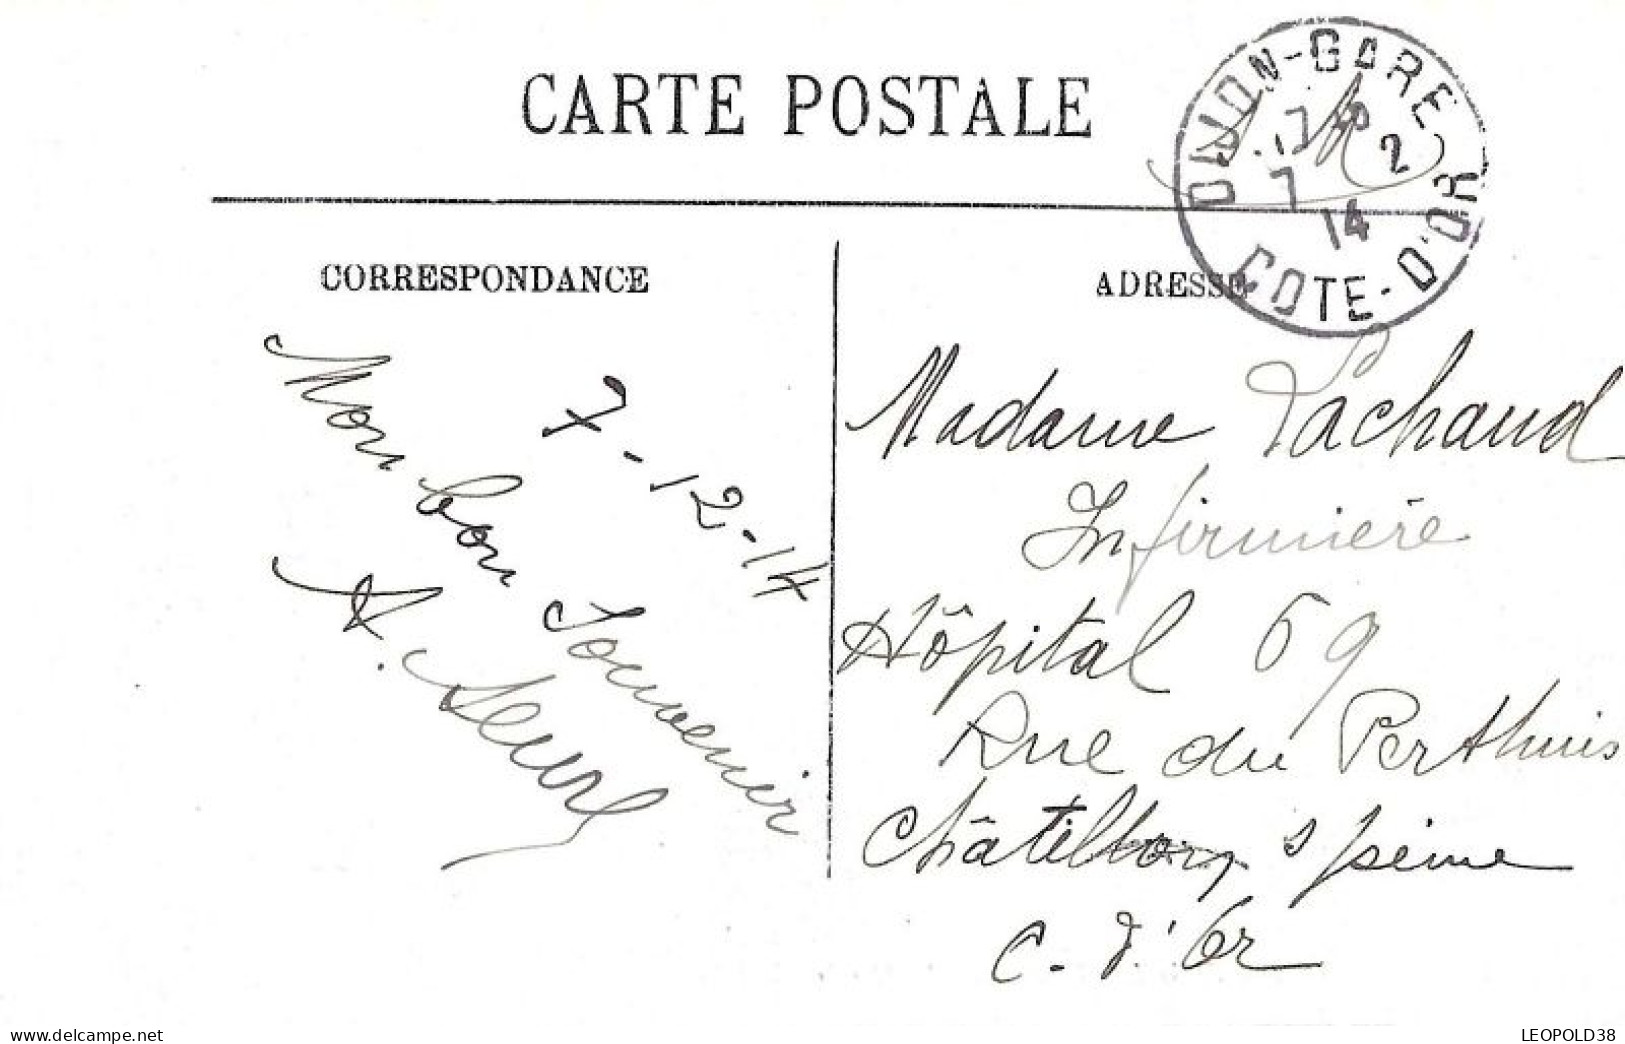 CARTE POSTALE
DIJON-GARE
7 - 12
14
COTE-D'OR
CORRESPONDANCE
7-12-14
Mon bon Souvenir
A.
ADRESSE
Madame Lachaud
Infirmière
Hôpital 69
Rue du Perthuis
Châtillon s/seine
C. d'Or
www.delcampe.net
LEOPOLD38